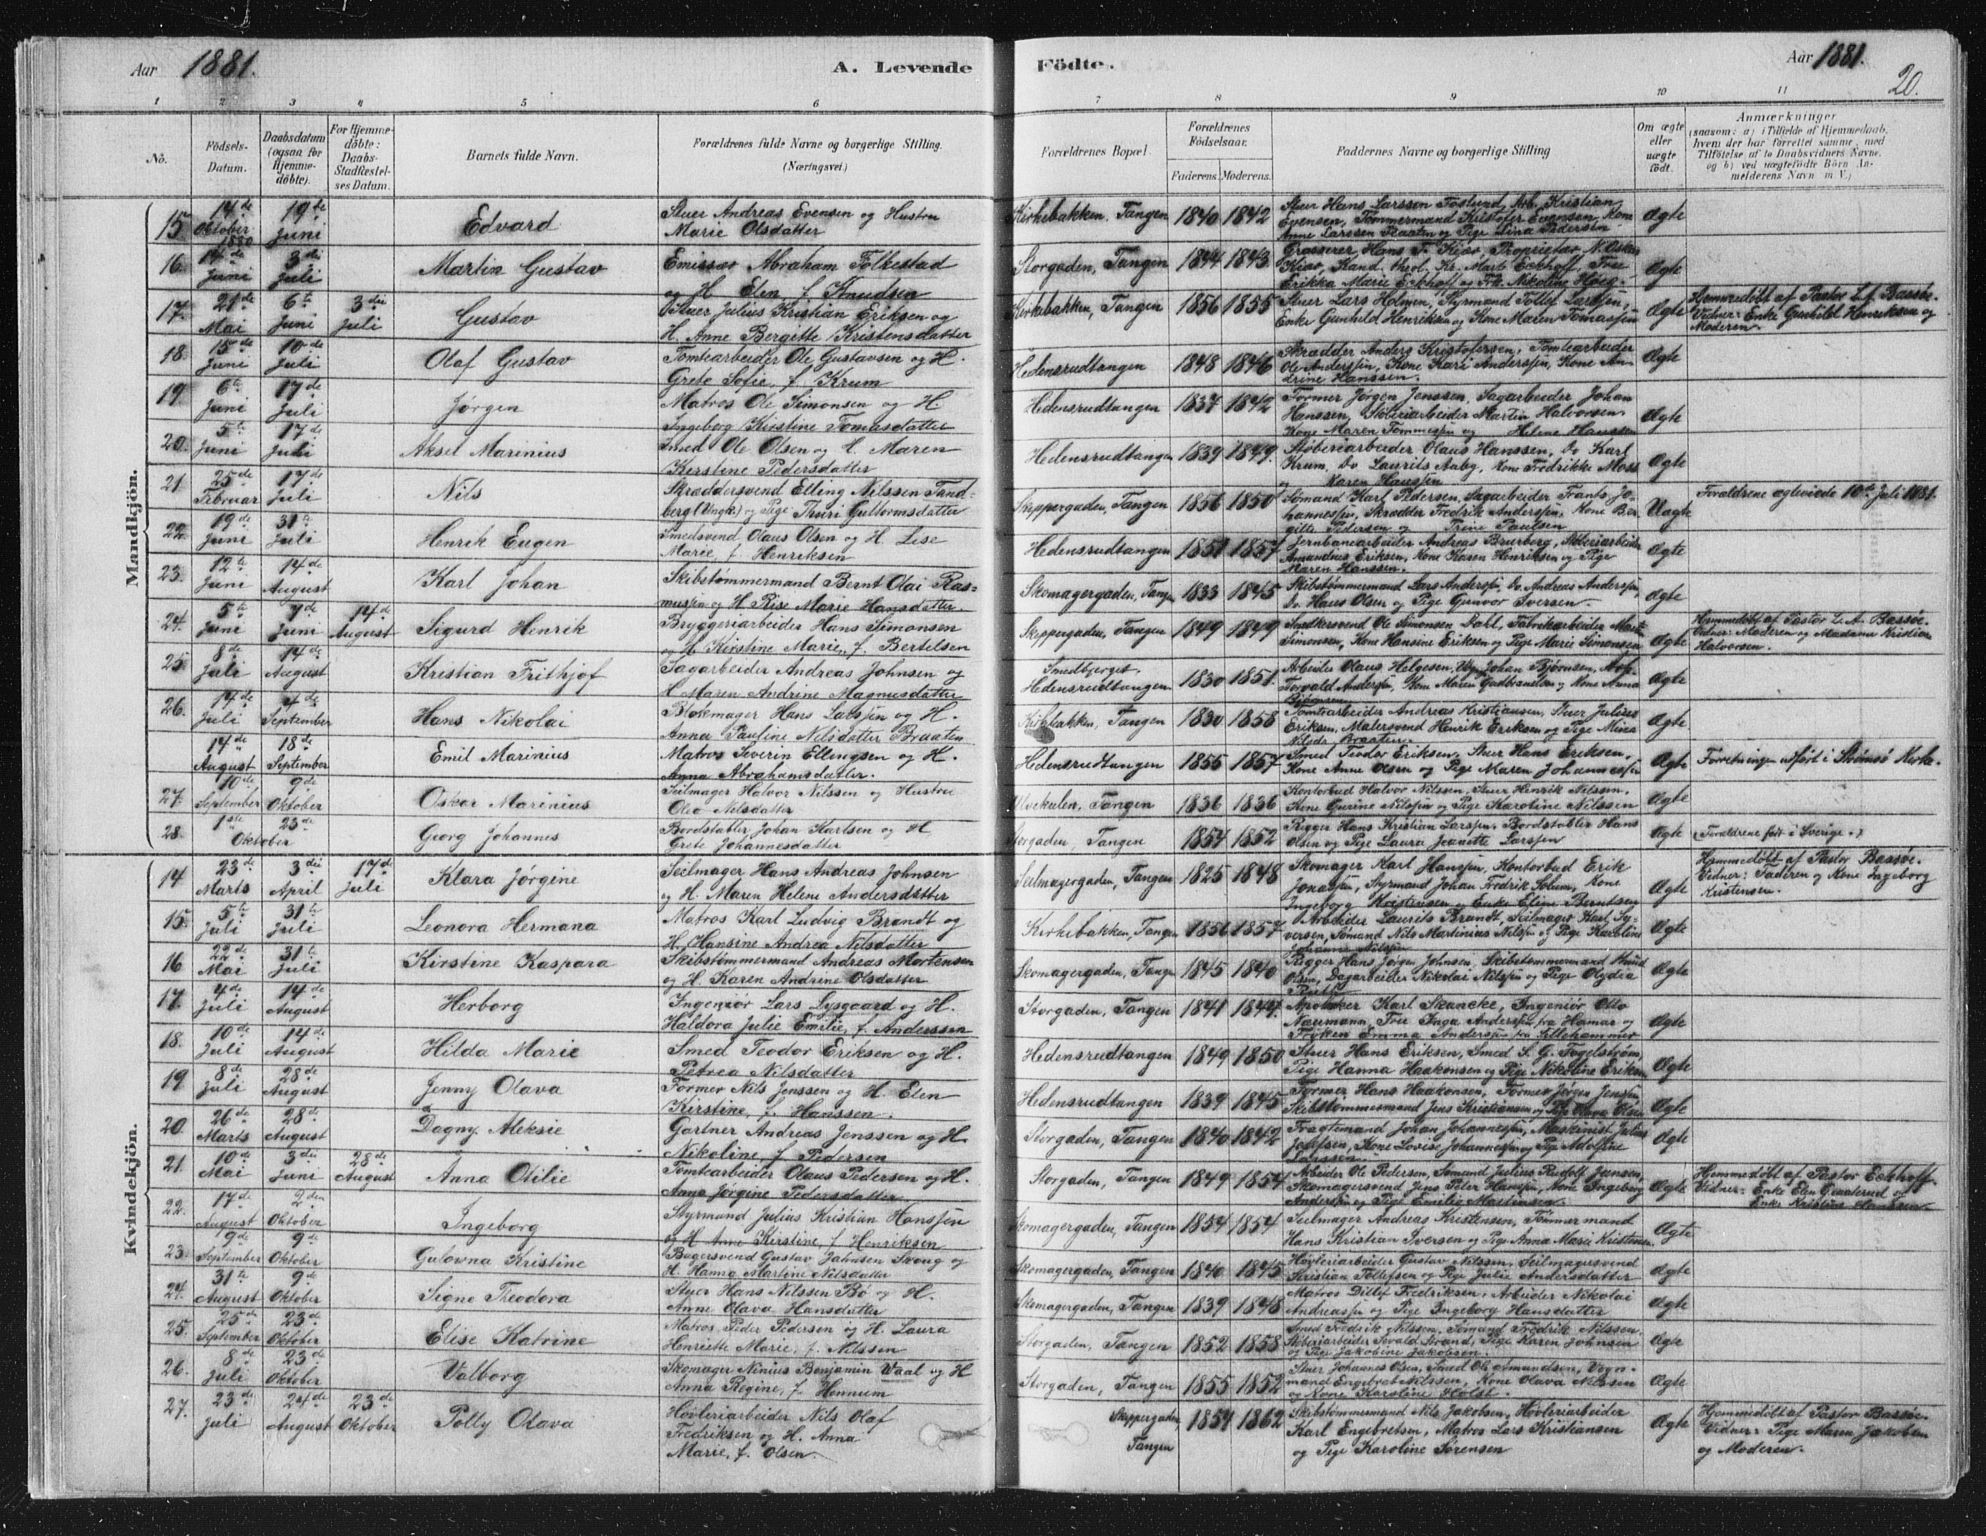 Aar 1881.
A. Levende
Födte.
Aar 1881.
20.
1 2 3 4 5 6 7 8 9 10 11
No.
Födsels-Datum.
Daabsdatum (ogsaa for Hjemmedöbte).
For Hjemmedöbte: Daabs-Stadfæstelses Datum.
Barnets fulde Navn.
Forældrenes fulde Navne og borgerlige Stilling. (Næringsvei.)
Forældrenes Bopæl.
Forældrenes Födselsaar.
Faderens. Moderens.
Faddernes Navne og borgerlige Stilling
Om ægte eller uægte födt.
Anmærkninger
(saasom: a) i Tilfælde af Hjemmedaab, hvem der har forrettet samme, med Tilföielse af to Daabsvidners Navne, og b) ved uægtefödte Börn Anmelderens Navn m. V.)
Mandkjön.
15 14de Oktober 1880 19de Juni Edvard Stuer Andreas Evensen og Hustru Marie Olsdatter Kirkebakken, Tangen 1840 1842 Stuer Hans Larssen Kristian Evensen, Tømmermand Kristofer Evensen, Kone Anne Larssen Braaten og Pige Lina Pedersen Ægte
16. 14de Juni 3die Juli Martin Gustav Emissær Abraham Folkestad og H. Elen f. Knudsen Storgaden, Tangen 1844 1843 Grosserer Hans F. Kiær, Proprietær N. Oskar Kiær, Stand. theol. Kr. Mart. Eckhoff, Frue Erikka Marie Eckhoff og Frk. Nikoline Høeg Ægte
17. 21de Mai 6te Juni 3die Juli Gustav Stuer Julius Kristian Eriksen og H. Anne Bergitte Kristensdatter Kirkebakken, Tangen 1856 1855 Stuer Lars Holmen, Styrmand Tollef Larssen, Enke Gunhild Henrikka og Kone Maren Tomassen Ægte Hjemmedøbt af Pastor L. A. Bassøe. Vidner: Enke Gunhild Henriksen og Moderen.
18. 15de Juni 10de Juli Olaf Gustav Tomtearbeider Ole Gustavsen og H. Grete Sofie, f. Krum Hedensrudtangen 1848 1846 Skrædder Anders Kristofersen, Tomtearbeider Ole Anderssen, Kone Kari Anderssen, Kone Andrine Hanssen. Ægte
19. 6te Juni 17de Juli Jørgen Matros Ole Simonsen og H. Ingeborg Kirstine Tomasdatter Hedensrudtangen 1837 1842 Former Jørgen Jenssen, Sagarbeider Johan Hanssen, Støberiarbeider Martin Halvorsen Kone Maren Tommessen og Helene Hanssen Ægte
20. 5te Juni 17de Juli Aksel Marinius Smed Ole Olsen og H. Maren Kirstine Pedersdatter Hedensrudtangen 1839 1849. Støberiarbeider Olaus Hanssen, Do Karl Krum, Do Laurits Aaby, Kone Fredrikke Moss og Karen Hanssen Ægte
21. 25de Februar 17de Juli Nils Skræddersvend Elling Nilssen Tandberg (Ungk.) og Pige Thuri Guttormsdatter Skippergaden, Tangen 1856 1850 Sømand Karl Pedersen, Sagarbeider Frants Johannessen, Skrædder Fredrik Anderssen, Kone Bergitte Pedersen og Trine Paulsen Uægte Forældrene ægteviede 10de Juli 1881.
22. 19de Juni 31te Juli Henrik Eugen Smedsvend Olaus Olsen og H. Lise Marie, f. Henriksen Hedensrudtangen 1851 1857 Jernbanearbeider Andreas Bruberg, Støberiarbeider Amandus Eriksen, Kone Karen Henriksen og Pige Maren Hanssen. Ægte
23. 12te Juni 14de August Karl Johan Skibstømmermand Bernt Olai Rasmussen og H. Rise Marie Hansdatter Skomagergaden, Tangen 1833 1845 Skibstømmermand Lars Anderssen, Do. Andreas Anderssen, Do. Hans Olsen og Pige Gunvor Iversen. Ægte
24. 5te Juni 7de Juni 14de August Sigurd Henrik Bryggeriarbeider Hans Simonsen og H. Kirstine Marie, f. Bertelsen Skippergaden, Tangen 1849 1849 Snedkersvend Ole Simonsen Dahl, Fabrikarbeider Simonsen, Kone Hansine Eriksen og Pige Marie Simonsen Ægte Hjemmedøbt af Pastor L. A. Bassøe. Vidner: Moderen og Madame Kristian Halvorsen.
25. 8de Juli 14de August Kristian Frithjof Sagarbeider Andreas Johnsen og H. Maren Andrine Magnusdatter Smedbjerget, Hedensrudtangen 1830 1851. Arbeider Olaus Helgesen, Johan Bjørnsen, Torvald Anderssen, Kone Maren Gudbrandsen og Kone Anna Bjørnsen Ægte
26. 14de Juli 4de September Hans Nikolai Blokmager Hans Larssen og H. Anna Pauline Nilsdatter Braaten Kirkebakken, Tangen 1830 1858 Tomtearbeider Andreas Kristiansen, Stuer Julius Eriksen, Malersvend Henrik Eriksen og Pige Mina Nilsdr. Braaten. Ægte
14de August 18de September Emil Marinius Matros Severin Ellingsen og H. Anna Abrahamsdatter. Hedensrudtangen 1855 1857 Smed Teodor Eriksen, Stuer Hans Eriksen, Kone Anne Olsen og Pige Maren Johannessen Ægte Forretningen udført i Strømsø Kirke.
27. 10de September 9de Oktober Oskar Marinius Seilmager Halvor Nilssen og Hustru Olea Nilsdatter Tangen 1836 1836 Kontorbud Halvor Nilssen, Stuer Henrik Nilssen. Kone Gurine Nilssen og Pige Karoline Nilssen Ægte
28. 1ste 23de Oktober Georg Johannes Bordstabler Johan Karlsen og H. Grete Johannesdatter Storgaden, Tangen 1854 1852 Rigger Hans Kristian Larssen, Bordstabler Hans Olsen og Pige Laura Jeanette Larssen Ægte (Forældrene født i Sverige.)
Kvindekjön.
14 23de Marts 3die April 17de Juli Klara Jørgine Seilmager Hans Andreas Johnsen og H. Maren Helene Andersdatter Seilmagergaden, Tangen 1825 1848 Skomager Karl Hanssen, Kontorbud Erik Jonassen, Styrmand Johan Fredrik Solum, Kone Ingeborg Kristensen og Enke Eline Berntsen Ægte Hjemmedøbt af Pastor Bassøe. Vidner: Faderen og Kone Ingeborg Kristensen.
15. 5te Juli 31te Juli Leonora Hermana Matros Karl Ludvig Brandt og H. Hansine Andrea Nilsdatter Kirkebakken, Tangen 1856 1857 Arbeider Laurits Brandt, Seilmager Karl Syversen, Sømand Nils Martinius Nilssen og Pige Karoline Johanne Nilssen Ægte
16 22de Mai 31te Juli Kirstine Kaspara Skibstømmermand Andreas Mortensen og H. Karen Andrine Olsdatter Skomagergaden, Tangen 1845 1840 Rigger Hans Jørgen Johnsen, Skibstømmermand Knud Olsen, Dagarbeider Nikolai Nilssen og Pige Olydia Ægte
17. 4de Juli 14de August Herborg Ingeniør Lars Lysgaard og H. Haldora Julie Emilie, f. Anderssen Storgaden, Tangen 1841 1844. Apoteker Karl Skancke, Ingeniør Otto Naumann, Frue Inga Anderssen fra Hamar og Frøken Emma Anderssen fra Lillehammer Ægte
18. 10de Juli 14de August Hilda Marie Smed Teodor Eriksen og H. Petrea Nilsdatter Hedensrudtangen 1849 1850 Stuer Hans Eriksen, Smed S. G. Fogelstrøm, Pige Hanna Haakonsen og Pige Nikoline Eriksen Ægte
19 8de Juli 28de August Jenny Olava Former Nils Jenssen og H. Elen Kirstine, f. Hanssen. Hedensrudtangen 1839 1845 Former Hans Haakonsen, Former Jørgen Jenssen, Skibstømmermand Jens Kristiansen og Pige Olava Olsen Ægte
20 26de Marts 28de August Dagny Aleksie Gartner Andreas Jenssen og H. Nikoline, f. Pedersen Storgaden, Tangen 1840 1842 Fragtemand Johan Johannessen, Maskinist Julius Josefsen, Kone Lovise Johannessen og Pige Adolfine Larssen Ægte
21 10de Mai 3die Juni 28de August Anna Otilie Tomtearbeider Olaus Pedersen og H. Anna Jørgine Pedersdatter Storgaden, Tangen 1849 1854 Arbeider Ole Pedersen, Sømand Julius Rudolf Jansen, Skomagersvend Jens Peter Hanssen, Kone Ingeborg Anderssen og Pige Emilie Martinsen Ægte Hjemmedøbt af Pastor Eckhoff. Vidner: Enke Elen Gunderud og Enke Kristine Hanssen
22. 17de August 2den Oktober Ingeborg Styrmand Julius Kristian Hanssen og H. Anne Kirstine, f. Henriksen Skomagergaden, Tangen 1854 1854 Seilmager Andreas Kristensen, Tømmermand Hans Kristian Iversen og Pige Anna Marie Kristensen Ægte
23. 9de September 9de Oktober Gulovna Kristine Bagersvend Gustav Jahnsen Skong og H. Hanna Martine Nilsdatter Skomagergaden, Tangen 1840 1845 Høvleriarbeider Gustav Nilssen, Seilmagersvend Kristian Tollefsen og Pige Julie Andersdatter Ægte
24. 31te August 9de Oktober Signe Theodora Styer Hans Nilssen Bø og H. Anne Olava Hansdatter Skomagergaden, Tangen 1839 1848 Matros Ditlef Fredriksen, Arbeider Nikolai Andreassen og Pige Ingeborg Hansdatter Ægte
25. 25de September 23de Oktober Elise Katrine Matros Peder Pedersen og H. Laura Henriette Marie, f. Nilssen Storgaden, Tangen 1852 1858 Smed Fredrik Nilssen, Sømand Fredrik Nilssen. Støberiarbeider Strand, Pige Karen Johnsen og Pige Jakobine Jakobsen. Ægte
26. 8de Juli 23de Oktober Valborg Skomager Ninius Benjamin Vaal og H Anna Regine, f. Hennum Storgaden, Tangen 1855 1852 Stuer Johannes Olsen, Smed Ole Amundsen, Vognmand Engebret Nilssen, Kone Olava Nilssen og Kone Karoline Holst. Ægte
27. 23de Juli 24de August 23de Oktober Polly Olava Høvleriarbeider Nils Olaf Fredriksen og H. Anna Marie, f. Olsen Skippergaden, Tangen 1854 1862 Skibstømmermand Nils Jakobsen, Høvleriarbeider Karl Engebretsen, Matros Lars Kristiansen og Pige Karoline Sørensen Ægte Hjemmedøbt af Pastor Bassøe. Vidner: Pige Maren Jakobsen og Moderen.